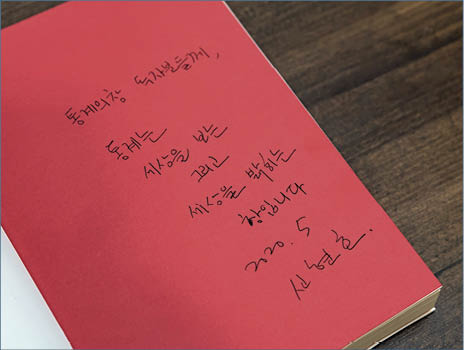 통계의창 독자분들께,
통계는
세상을 보는
그리고
세상을 밝히는
창입니다
2020. 5
신현호.